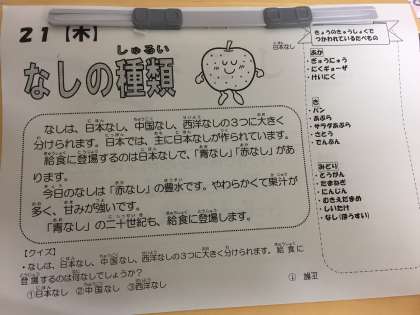 21【木】
しゅるい
なしの種類
日本なし
なしは、日本なし、中国なし、西洋なしの3つに大きく
分けられます。日本では、主に日本なしが作られています。
給食に登場するのは日本なしで、「青なし」「赤なし」があ
ります。
今日のなしは「赤なし」の豊水です。やわらかくて果汁が
多く、甘みが強いです。
「青なし」の二十世紀も、給食に登場します。
【クイズ】
・なしは、日本なし、中国なし、西洋なしの3つに大きく分けられます。給食に
登場するのは何なしでしょうか?
①日本なし ②中国なし ③西洋なし
きょうのきゅうしょくで
つかわれているたべもの
あか
・ぎゅうにゅう
・にくギョーザ
・けいにく
き
・パン
・あぶら
・サラダあぶら
・さとう
・でんぷん
みどり
・とうがん
・たまねぎ
・にんじん
・むきえだまめ
・しいたけ
・なし(ほうすい)